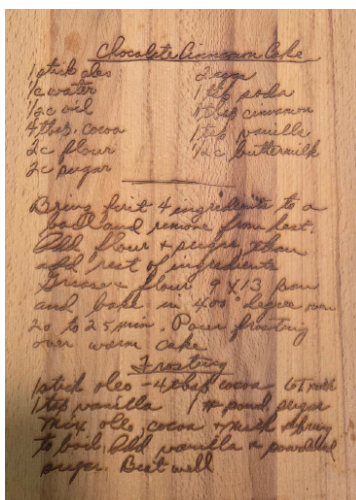 Chocolate Cinnamon Cake
1 stick oleo
1 c water
1/2 c oil
4 tbs. cocoa
2 c flour
2 c sugar
2 eggs
1 tsp soda
1 tsp vanilla
1/2 c buttermilk
Bring first 4 ingredients to a
boil and remove from heat.
Add flour + sugar, then
add rest of ingredients
Grease + flour 9 X 13 pan
and bake in 400° degree oven
20 to 25 min. Pour frosting
over warm cake
Frosting
1 stick oleo - 4 tbsp cocoa 6T milk
1 tsp vanilla 1 # powd. sugar
Mix oleo, cocoa + milk
to boil. Add vanilla + powdered
sugar. Beat well